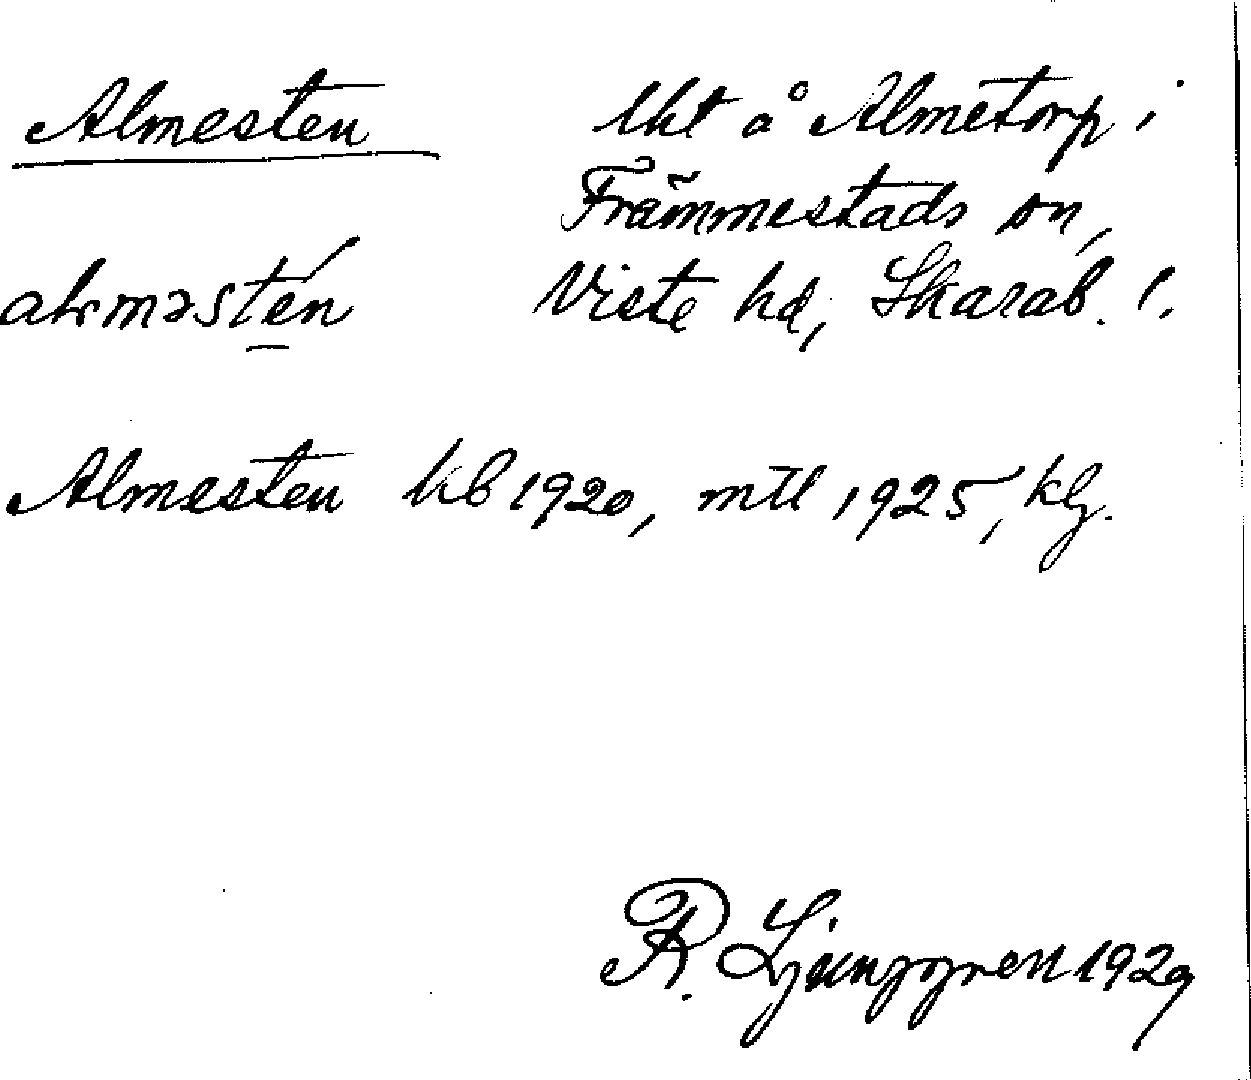 Almesten
lht å Almetorp i
Främmestads sn,
Viste hd, Skarab. l.
Almesten kb 1920, mtl 1925, klj.
R. Ljunggren 1929